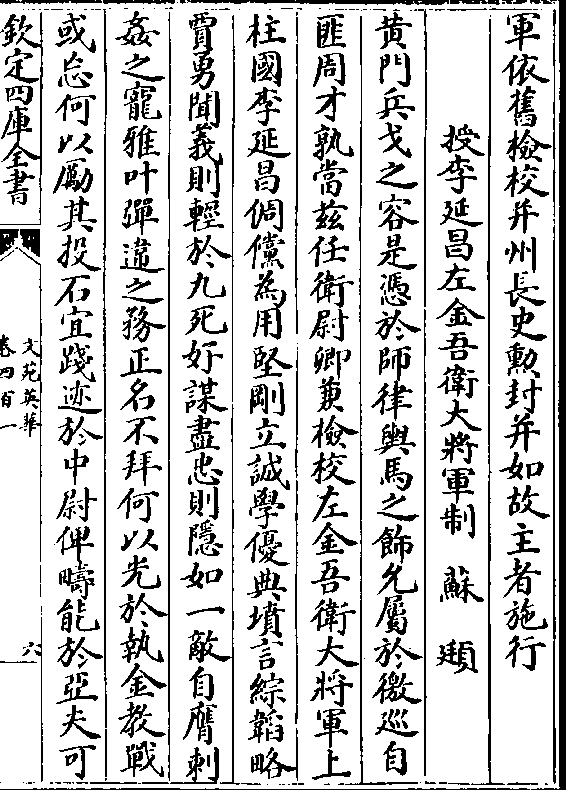 軍依舊檢校并州長史勲封并如故主者施行
授李延昌左金吾衛大將軍制　蘇　頲
黄門兵戈之容是憑於師律輿馬之飾允屬於徼巡自
匪周才孰當兹任衛尉卿兼檢校左金吾衛大將軍上
柱國李延昌倜儻為用堅剛立誠學優典墳言綜韜略
賈勇聞義則輕於九死好謀盡忠則隱如一敵自膺刺
姦之寵雅叶彈違之務正名不拜何以光於執金教戰
或忘何以勵其投石宜踐迹於中尉俾疇能於亞夫可
欽定四庫全書
文苑英華
卷四百一
六